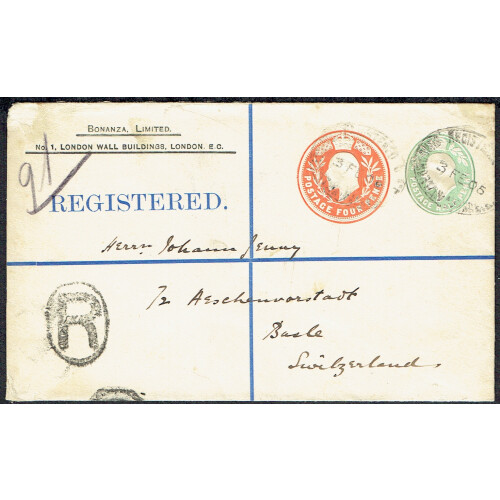 BONANZA, LIMITED.
No. 1, LONDON WALL BUILDINGS, LONDON. E.C.
91
REGISTERED.
POSTAGE FOUR PENCE
REGISTERED
3 FE 05
Herrn Johann Jenny
72 Aeschenvorstadt
Basle
Switzerland.
R